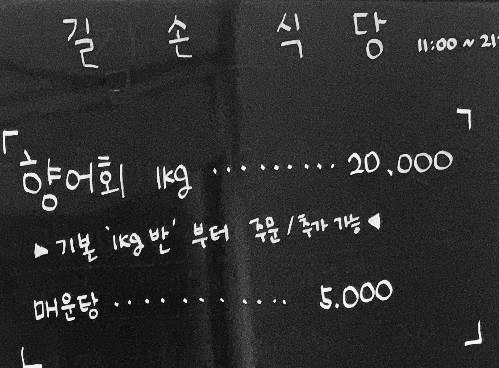 길손식당 11:00 ~ 21
향어회 1kg ········· 20,000
▶ 기본 '1kg 반' 부터 주문/추가 가능 ◀
매운탕 ············ 5.000